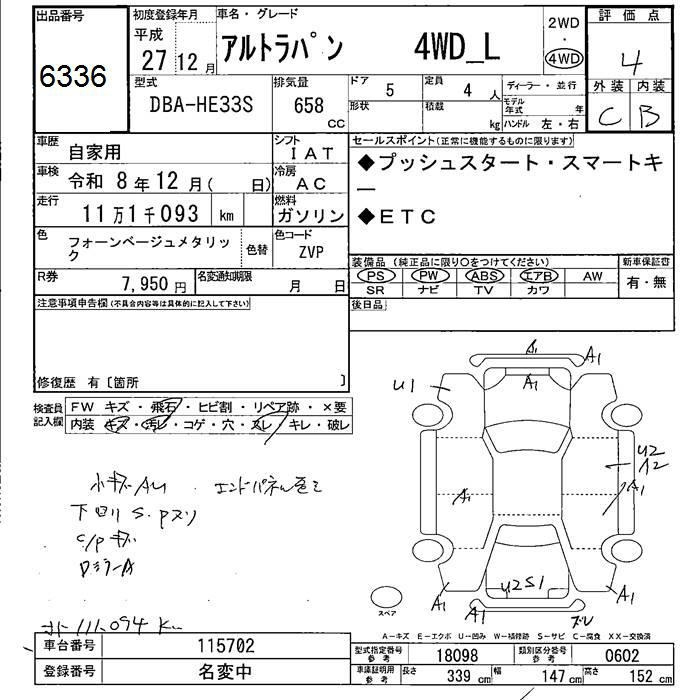 出品番号
6336
初度登録年月
平成
27 12 月
車名・グレード
アルトラパン 4WD_L
2WD
・
4WD
評価点
4
外装 内装
C B
型式
DBA-HE33S
排気量
658
CC
ドア
5
定員
4 人
形状
積載
kg
ディーラー・並行
モデル年式 年
ハンドル 左・右
車歴
自家用
シフト
IAT
車検
令和 8年12月( 日)
冷房
AC
走行
11万1千093 km
燃料
ガソリン
色
フォーンベージュメタリック
色替
色コード
ZVP
R券
7,950 円
名変通知期限
月 日
セールスポイント(正常に機能するものに限ります)
◆プッシュスタート・スマートキ
ー
◆ETC
装備品(純正品に限り○をつけてください)
新車保証書
PS PW ABS エアB AW
SR ナビ TV カワ
有・無
後日品
注意事項申告欄(不具合内容等は具体的に記入して下さい)
修復歴 有〔箇所 〕
検査員記入欄
FW キズ・飛石・ヒビ割・リペア跡・×要
内装 キズ・汚レ・コゲ・穴・スレ・キレ・破レ
小キズAU
下回りS.Pヌリ
C/Pキズ
111,094 Km
A1
A1
A1
U1
U2
A2
A1
A1
U2S1
A1
A1
A1
スペア
A-キズ E-エクボ U-凹み W-補修跡 S-サビ C-腐食 XX-交換済
車台番号
115702
登録番号
名変中
型式指定番号
参考
18098
類別区分番号
参考
0602
車庫証明用
参考
長さ 339 cm 幅 147 cm 高さ 152 cm